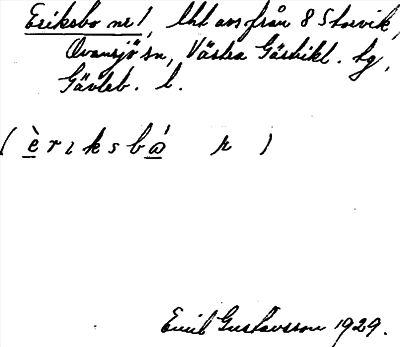 Eriksbo nr 1, lht avs från 8 Storvik,
Ovansjö sn, Västra Gästrikl. tg,
Gävleb. l.
( è r ɩ k s b ó̲ n )
Emil Gustavsson 1929.